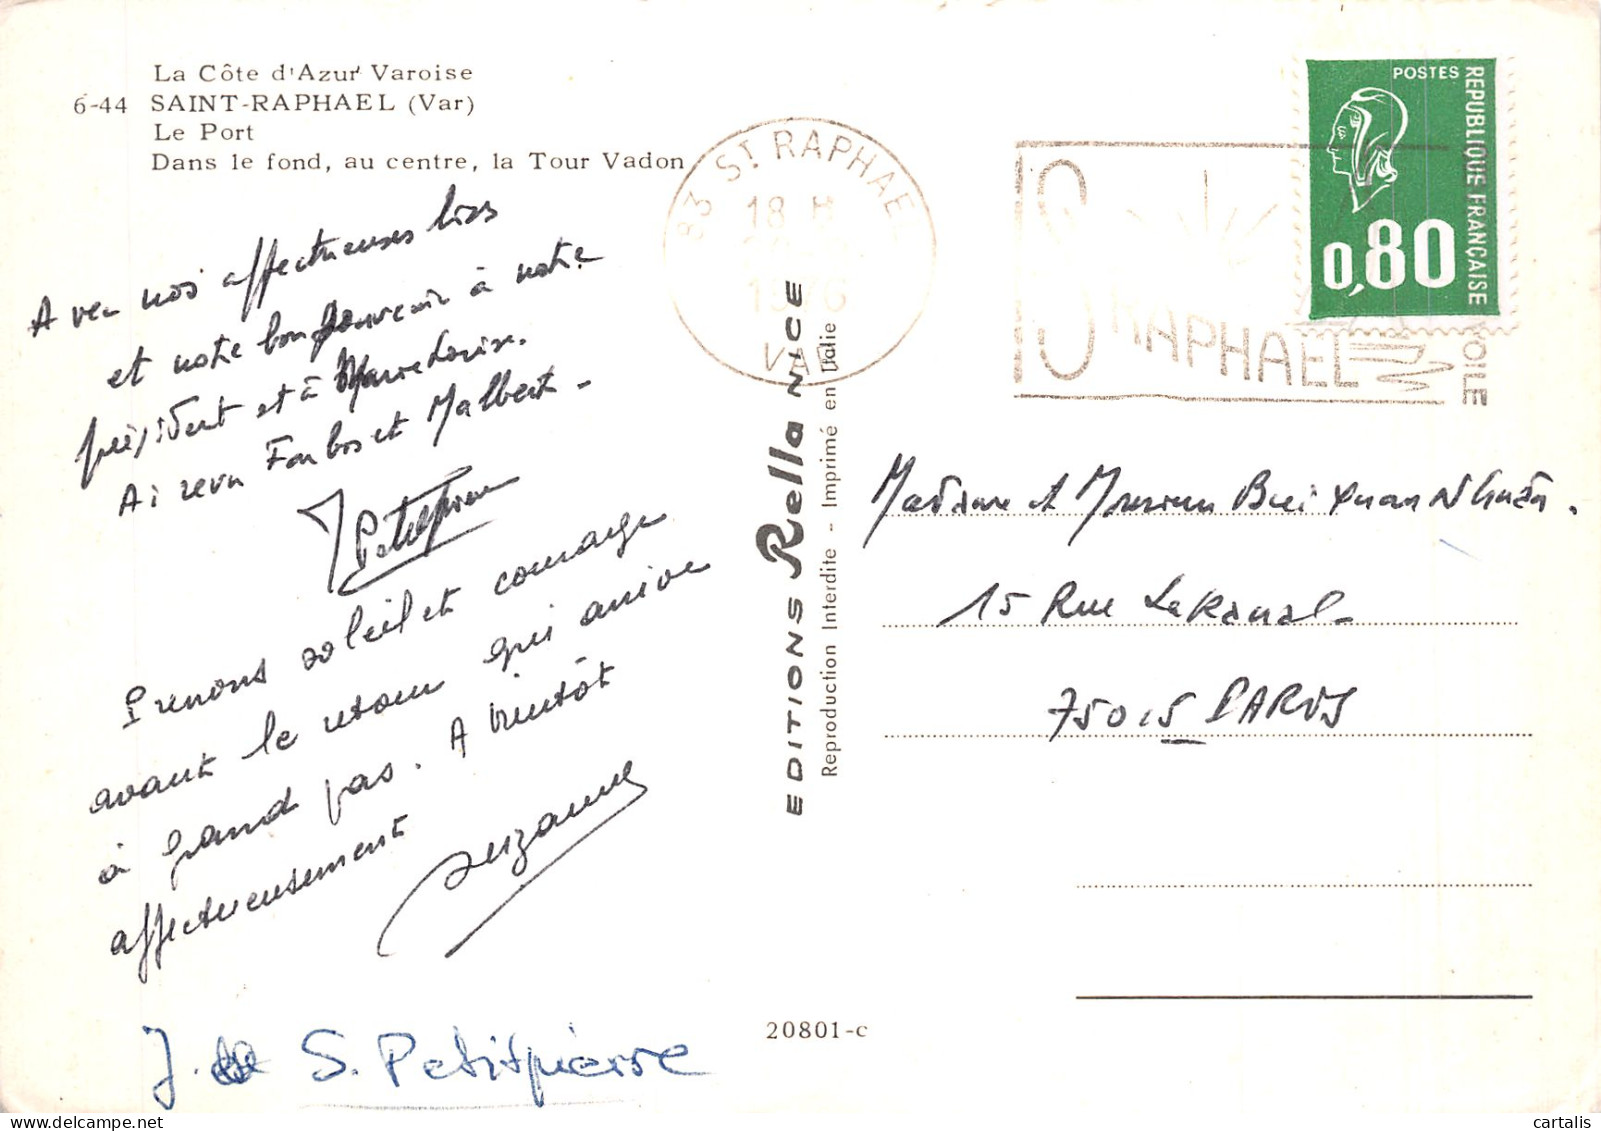 La Côte d'Azur Varoise
6-44 SAINT-RAPHAEL (Var)
Le Port
Dans le fond, au centre, la Tour Vadon
Avec nos affectueuses
et notre bon souvenir à notre
président et à
Ai revu et Malbert -
J Petitpierre
Prenons soleil et courage
avant le retour qui arrive
à grand pas. A bientôt
affectueusement
Suzanne
J. S. Petitpierre
EDITIONS Rella NICE
Reproduction Interdite - Imprimé en Italie
20801-c
83 ST RAPHAEL
18 H
1976
VAR
S
RAPHAEL
VOILE
POSTES
REPUBLIQUE FRANÇAISE
0,80
Madame et Monsieur Bui Xuan Nhuân.
15 Rue Lakanal -
75015 PARIS
cartalis